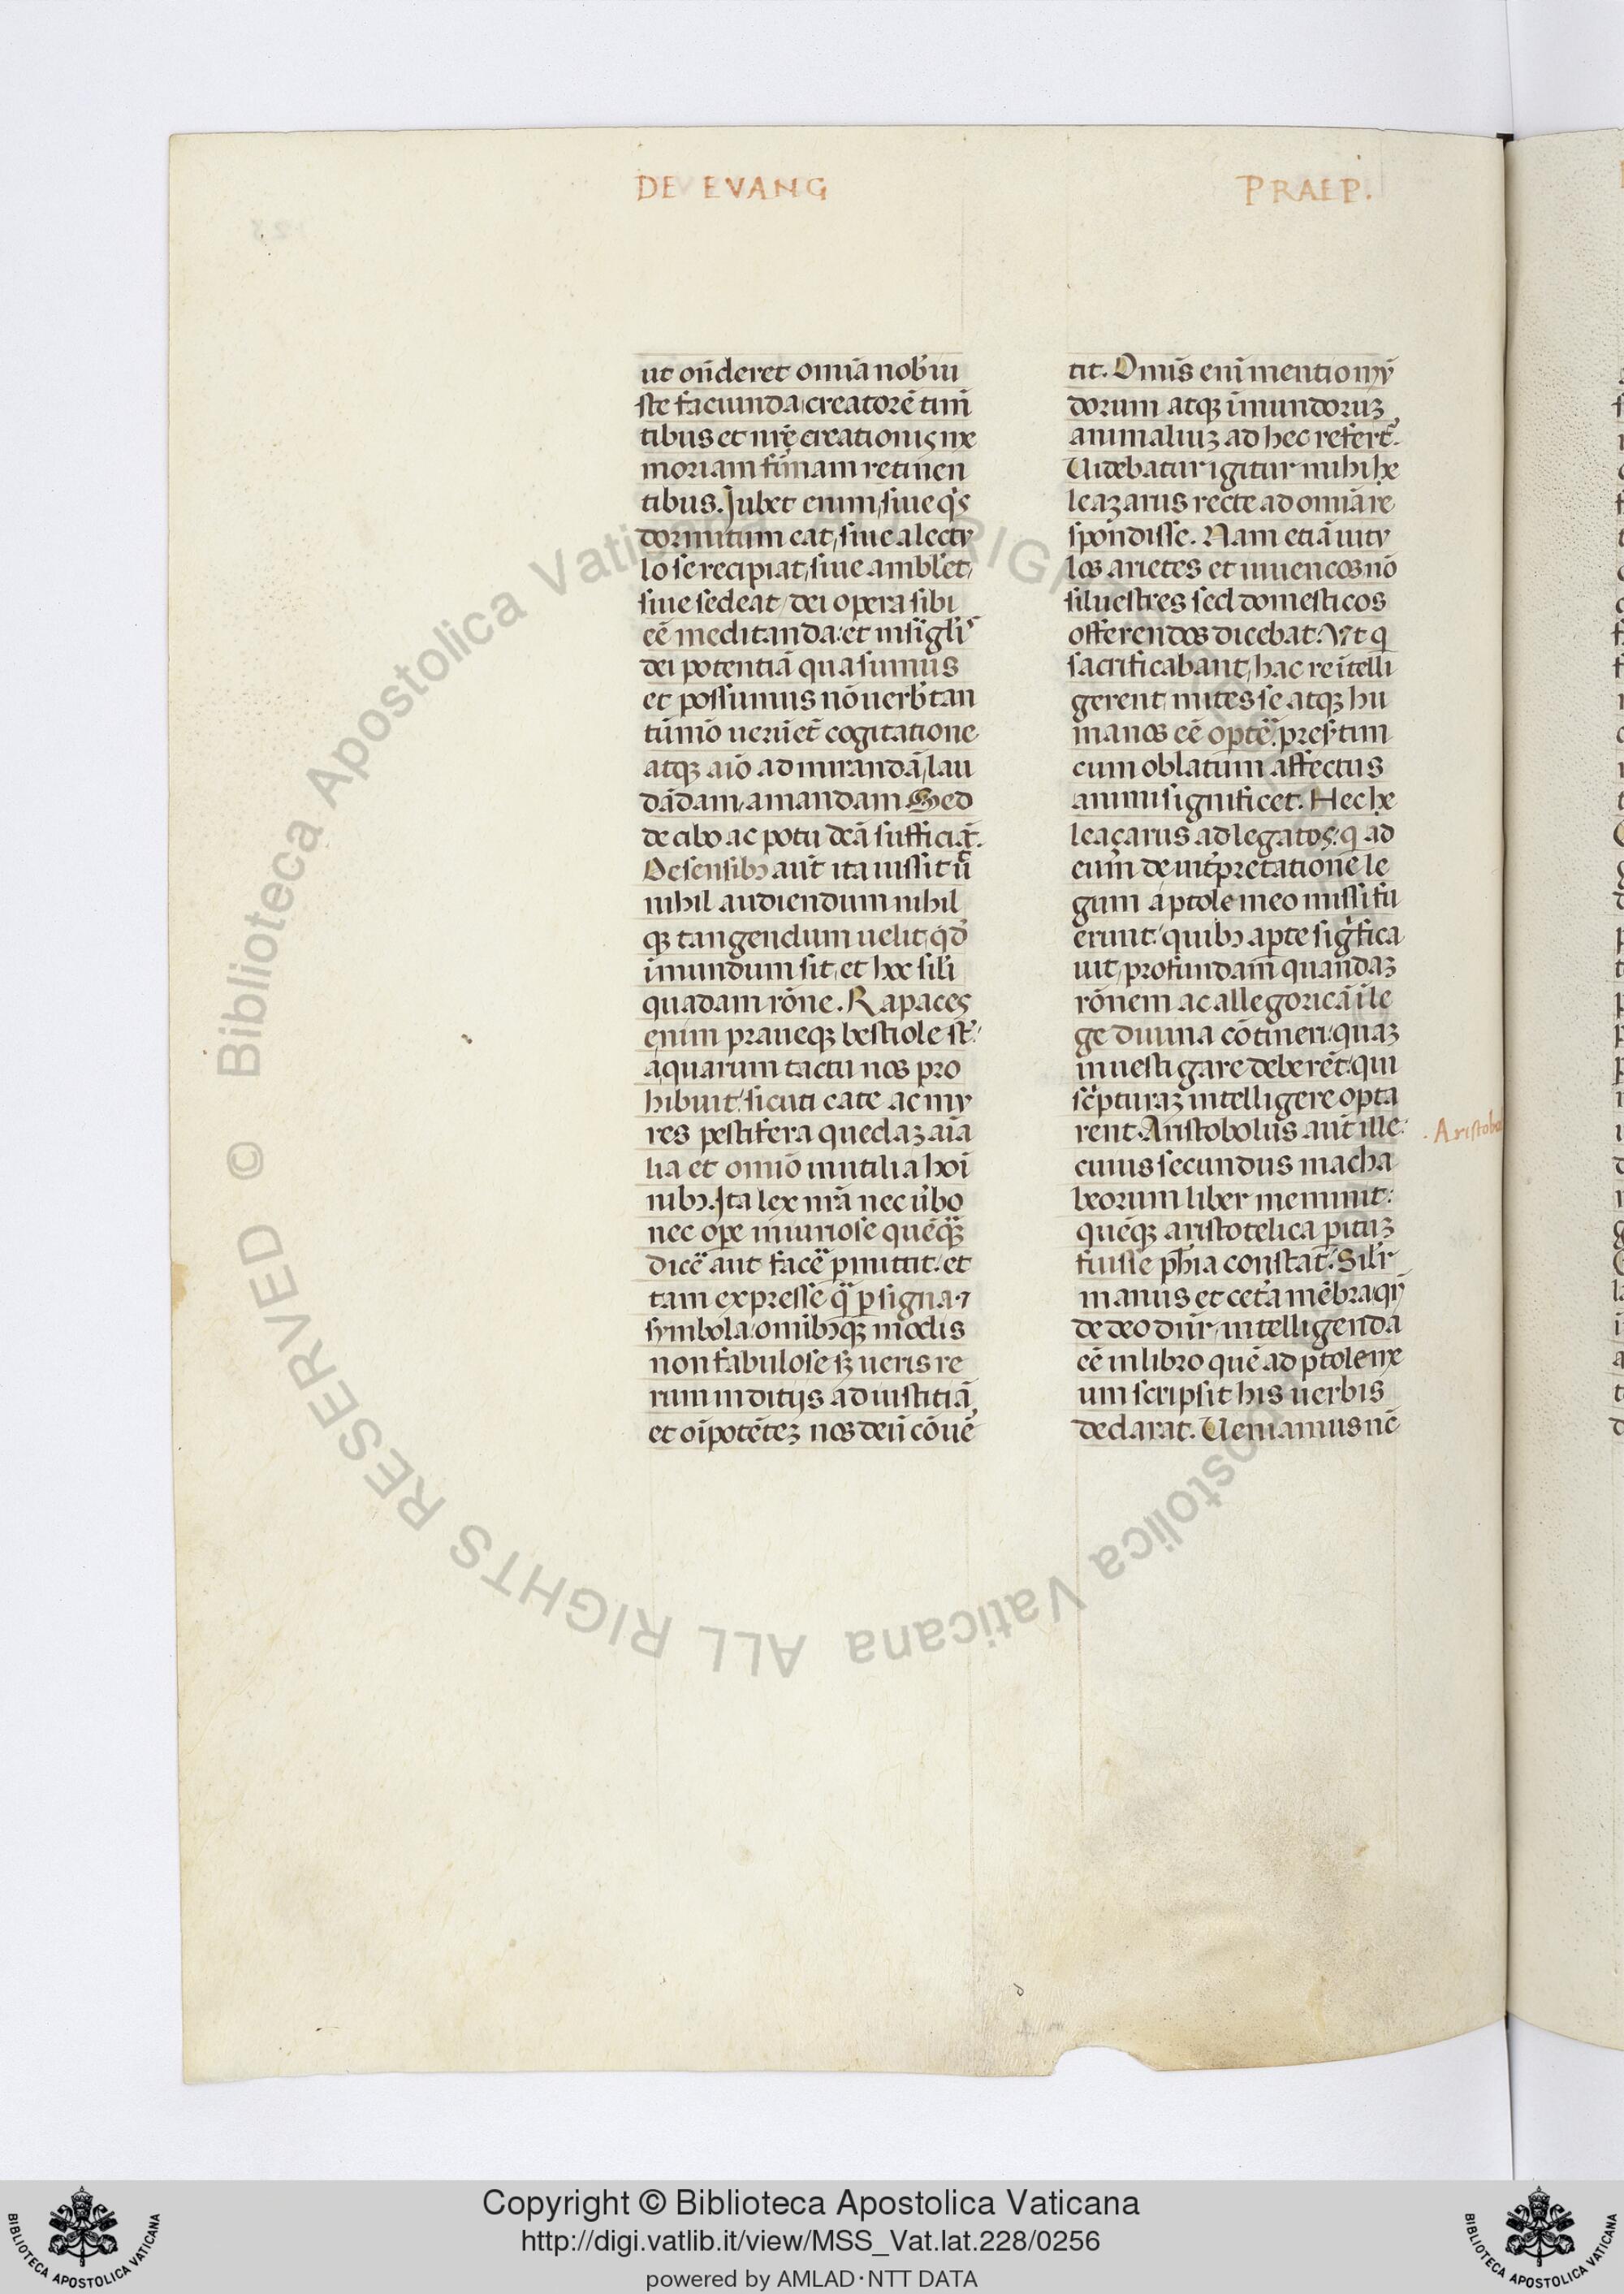 DE EVANG PRAEP.
ut oñderet omīa nob iu
ste faciunda creatorē tim̄
tibus et nr̄ę creationis me
moriam firmam retinen
tibus. Jubet enim, siue qs
dormitum eat, siue a lectu
lo se recipiat, siue amblet,
siue sedeat, dei opera sibi
eē meditanda: et insigli
dei potentiā qua sumus
et possumus nō uerb tan
tūmō uerūet cogitatione
atqꝫ aīo admirandā, lau
dādam, amandam. Sed
de cibo ac potu deā sufficiāt.
De sensibꝫ aut ita iussit ū
nihil audiendum nihil
qꝫ tangendum uelit, qđ
īmundum sit, et hoc sili
quadam rōne. Rapaces
enim praueqꝫ bestiole st:
aquarum tactu nos pro
hibuit: sicuti cate ac my
res pestifera quedaꝫ aīa
lia et omīo inutilia hoī
nibꝫ. Ita lex nr̄a nec ūbo
nec ope iniuriose quēqꝫ
dicē aut facē pmittit: et
tam expresse q̄ p signa ⁊
symbola omibꝫqꝫ modis
non fabulose sꝫ ueris re
rum inditijs ad iustitiā
et oīpotēteꝫ nos deū cōuē
tit. Omīs enī mentio my
dorum atqꝫ īmundoruꝫ
animaliuꝫ ad hec refert.
Uidebatur igitur mihi he
leazarus recte ad omīa re
spondisse. Nam etiā uity
los arietes et iuuencos nō
siluestres sed domesticos
offerendos dicebat: Vt q
sacrificabant, hac re ītelli
gerent, mites se atqꝫ hu
manos eē opte: presertim
cum oblatum affectus
animi significet. Hec he
leaçarus ad legatos: q ad
eum de int̄pretatione le
gum a ptolemeo missi fu
erunt: quibꝫ apte sigfica
uit, profundam̄ quandaꝫ
rōnem ac allegoricā ī le
ge diuina cōtineri: quaꝫ
inuestigare deberēt: qui
sc̄pturaꝫ intelligere opta
rent. Aristobolus aut ille:
cuius secundus macha
beorum liber meminit:
quēqꝫ aristotelica pituꝫ
fuisse phīa constat: Silr
manus et cetā mēbra: qy
de deo dn̄r, intelligenda
eē in libro quē ad ptoleme
um scripsit his uerbis
declarat. Ueniamus nc̄
. Aristobo